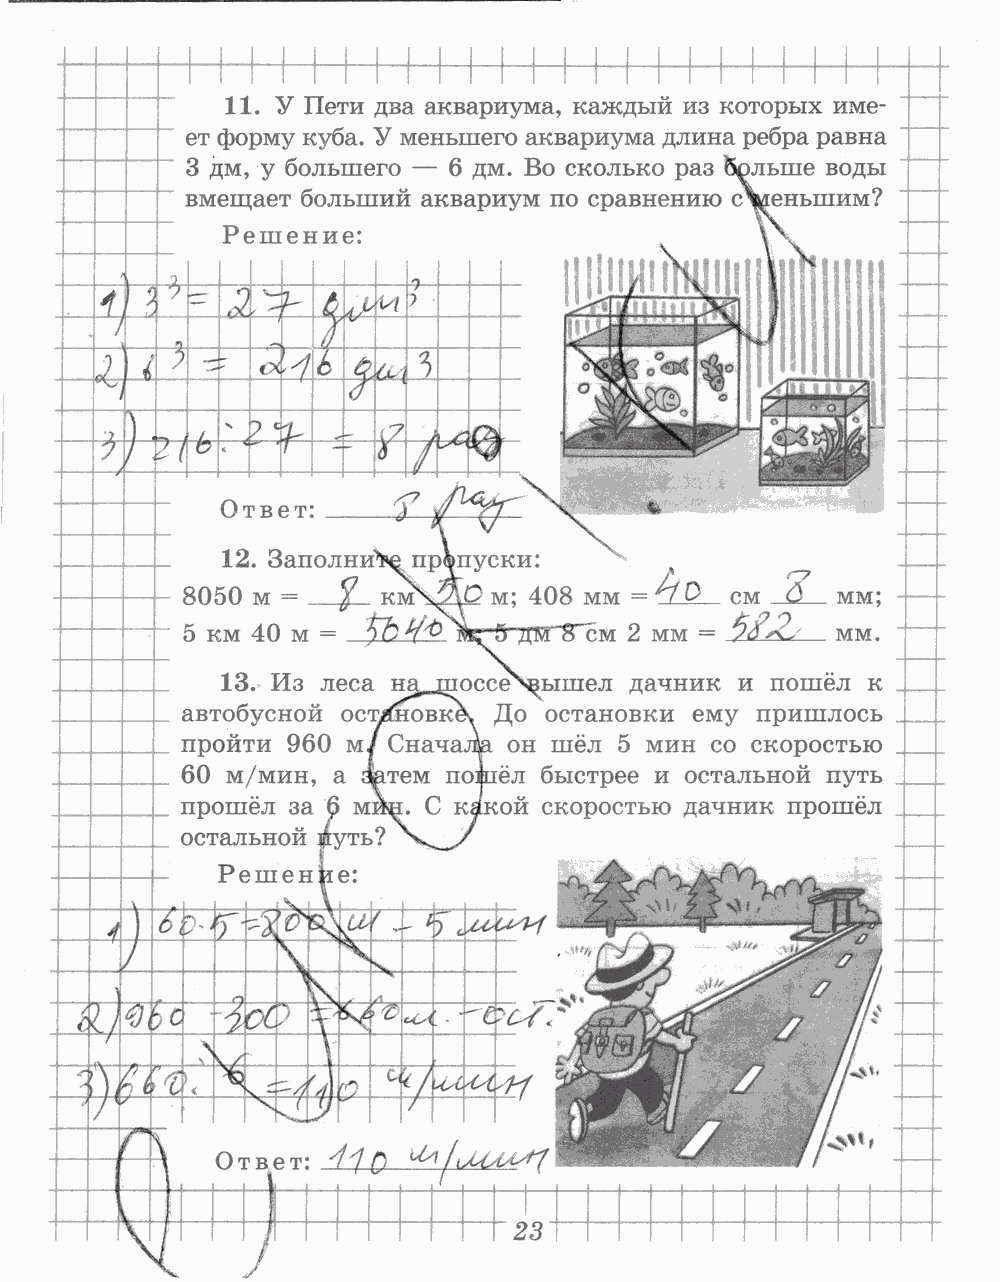 11. У Пети два аквариума, каждый из которых име-
ет форму куба. У меньшего аквариума длина ребра равна
3 дм, у большего — 6 дм. Во сколько раз больше воды
вмещает больший аквариум по сравнению с меньшим?
Решение:
1) 3³ = 27 дм³
2) 6³ = 216 дм³
3) 216 : 27 = 8 раз
Ответ: 8 раз
12. Заполните пропуски:
8050 м = 8 км 50 м; 408 мм = 40 см 8 мм;
5 км 40 м = 5040 м; 5 дм 8 см 2 мм = 582 мм.
13. Из леса на шоссе вышел дачник и пошёл к
автобусной остановке. До остановки ему пришлось
пройти 960 м. Сначала он шёл 5 мин со скоростью
60 м/мин, а затем пошёл быстрее и остальной путь
прошёл за 6 мин. С какой скоростью дачник прошёл
остальной путь?
Решение:
1) 60·5=300 м – 5 мин
2) 960 - 300 = 660 м. – ост.
3) 660 : 6 = 110 м/мин
Ответ: 110 м/мин
23